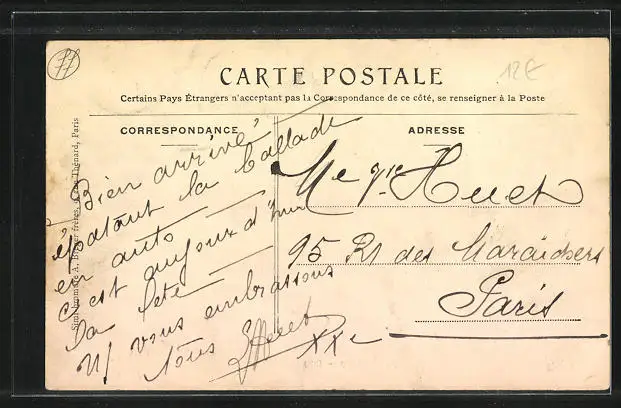 12€
CARTE POSTALE
Certains Pays Étrangers n'acceptant pas la Correspondance de ce côté, se renseigner à la Poste
CORRESPONDANCE
ADRESSE
Bien arrivé
épatant la ballade
en auto
c'est aujourd'hui
la fête
N/ vous embrassons
tous
Huet
XXe
Me Huet
95 R. des Maraichers
Paris
frères, Thénard, Paris